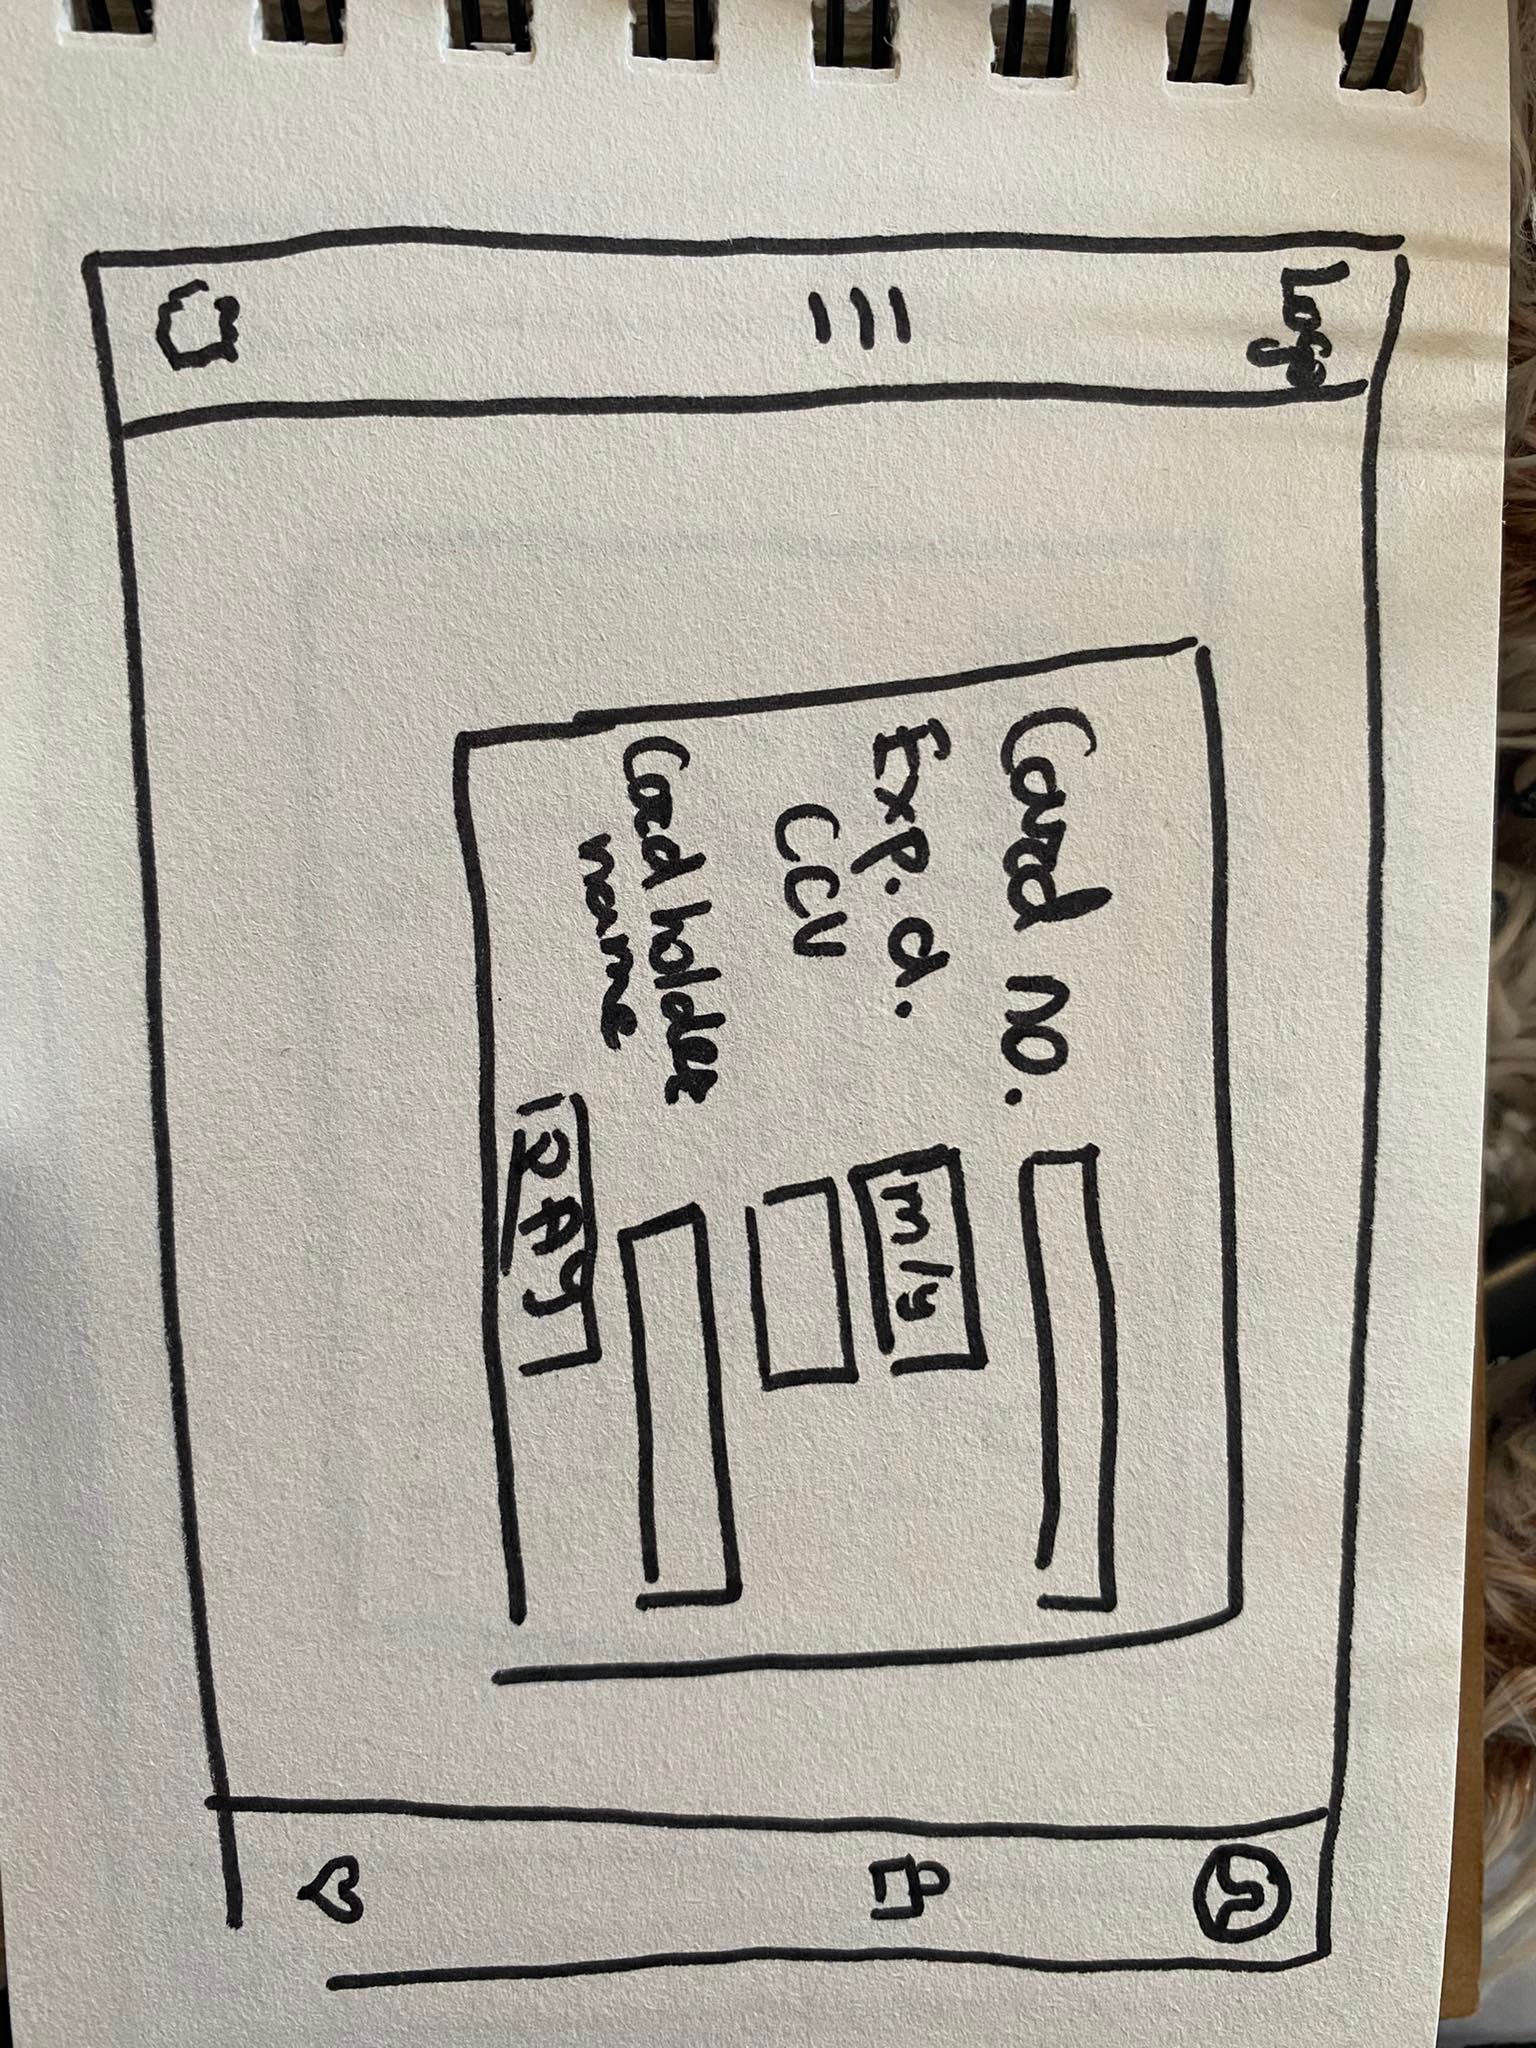 Logo
Card no.
Exp. d.
m/y
CCV
Card holder
name
PAy